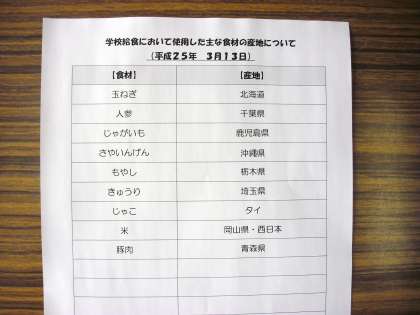 学校給食において使用した主な食材の産地について
（平成２５年　３月１３日）
【食材】　【産地】
玉ねぎ　北海道
人参　千葉県
じゃがいも　鹿児島県
さやいんげん　沖縄県
もやし　栃木県
きゅうり　埼玉県
じゃこ　タイ
米　岡山県・西日本
豚肉　青森県